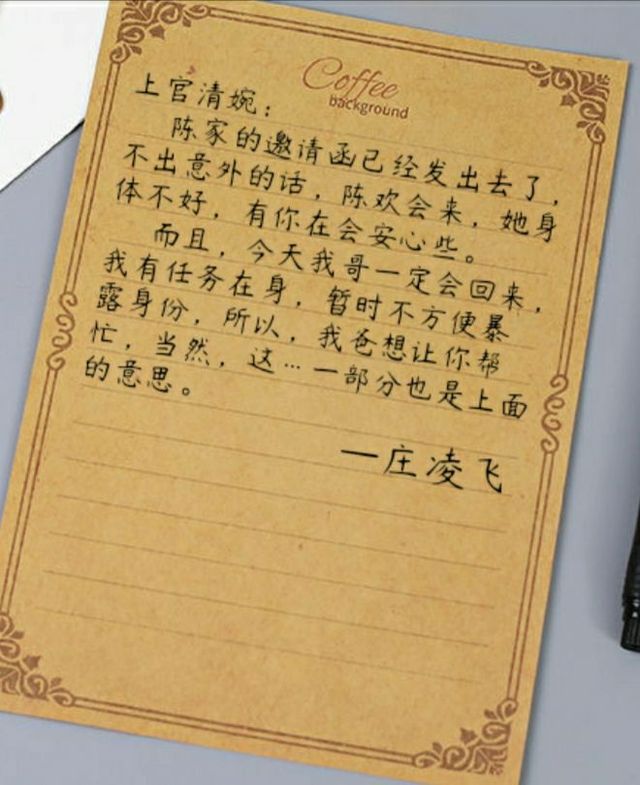 Coffee
background
上官清婉：
陈家的邀请函已经发出去了，
不出意外的话，陈欢会来，她身
体不好，有你在会安心些。
而且，今天我哥一定会回来，
我有任务在身，暂时不方便暴
露身份，所以，我爸想让你帮
忙，当然，这…一部分也是上面
的意思。
—庄凌飞